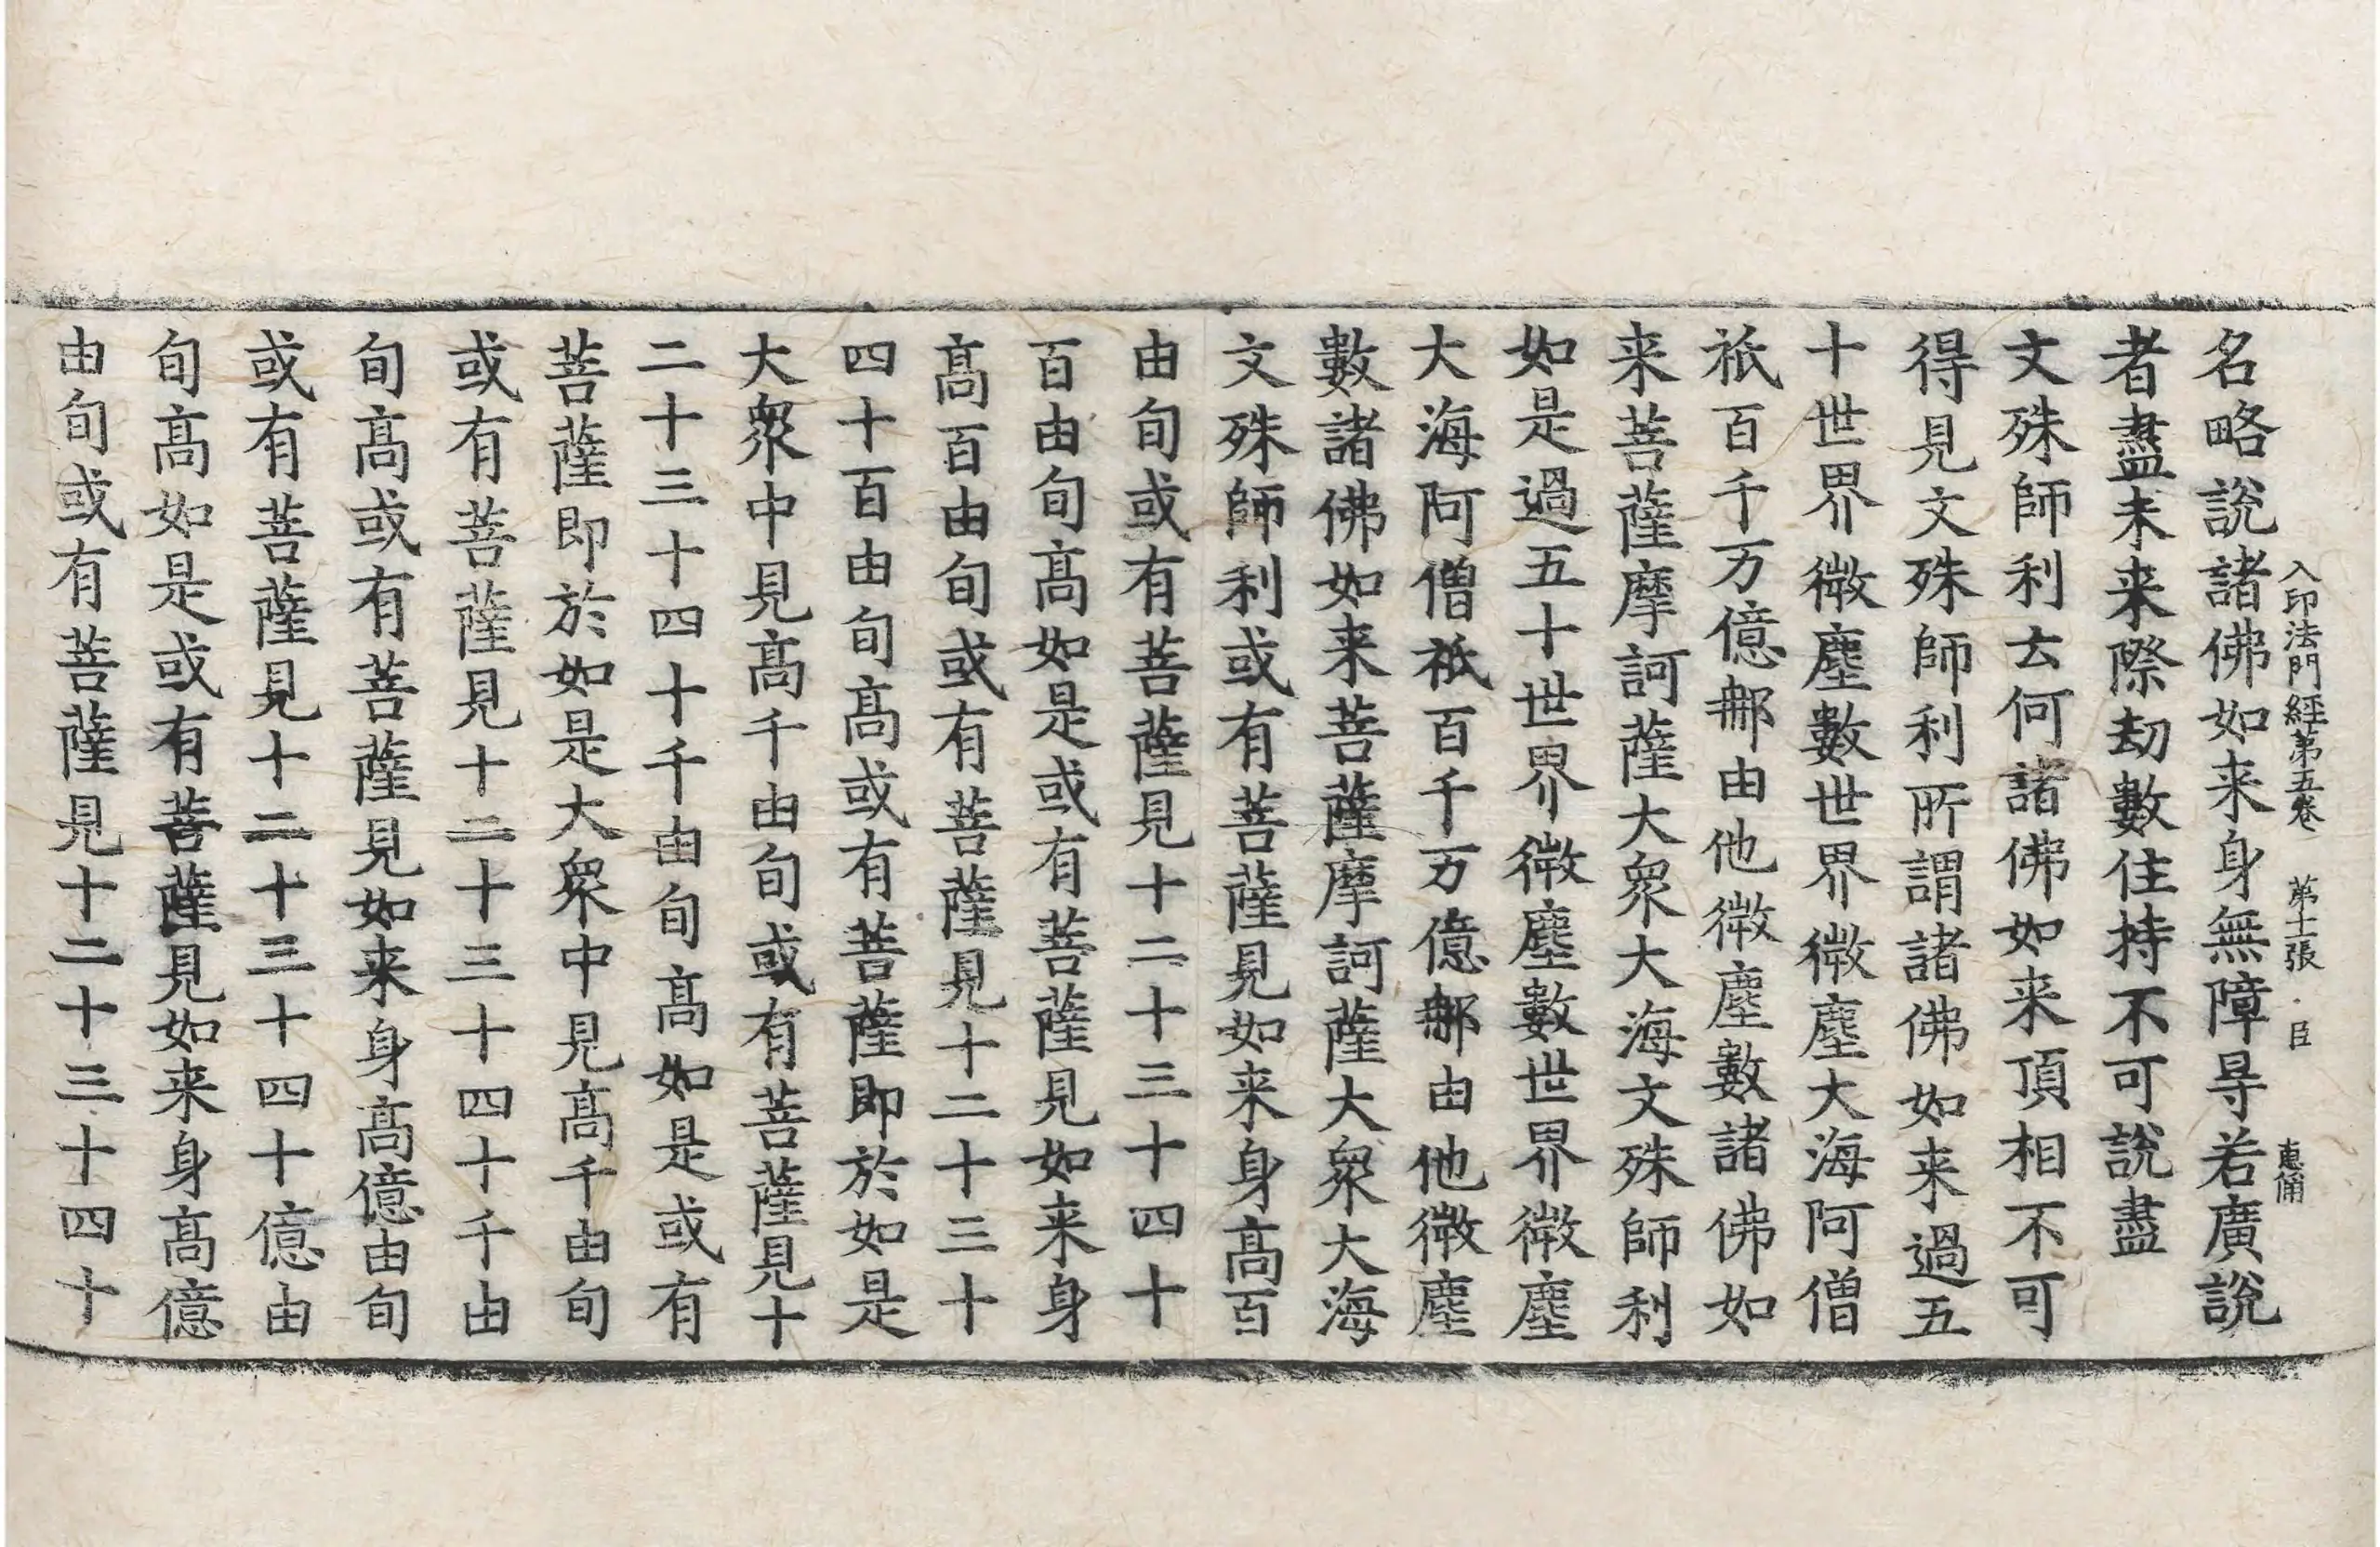 入印法門經第五卷 第十一張 臣 惠俌
名略說諸佛如来身無障㝵若廣說
者盡未来際劫數住持不可說盡
文殊師利云何諸佛如来頂相不可
得見文殊師利所謂諸佛如来過五
十世界微塵數世界微塵大海阿僧
祇百千万億那由他微塵數諸佛如
来菩薩摩訶薩大衆大海文殊師利
如是過五十世界微塵數世界微塵
大海阿僧祇百千万億那由他微塵
數諸佛如来菩薩摩訶薩大衆大海
文殊師利或有菩薩見如来身高百
由旬或有菩薩見十二十三十四十
百由旬高如是或有菩薩見如来身
高百由旬或有菩薩見十二十三十
四十百由旬高或有菩薩即於如是
大衆中見高千由旬或有菩薩見十
二十三十四十千由旬高如是或有
菩薩即於如是大衆中見高千由旬
或有菩薩見十二十三十四十千由
旬高或有菩薩見如来身高億由旬
或有菩薩見十二十三十四十億由
旬高如是或有菩薩見如来身高億
由旬或有菩薩見十二十三十四十